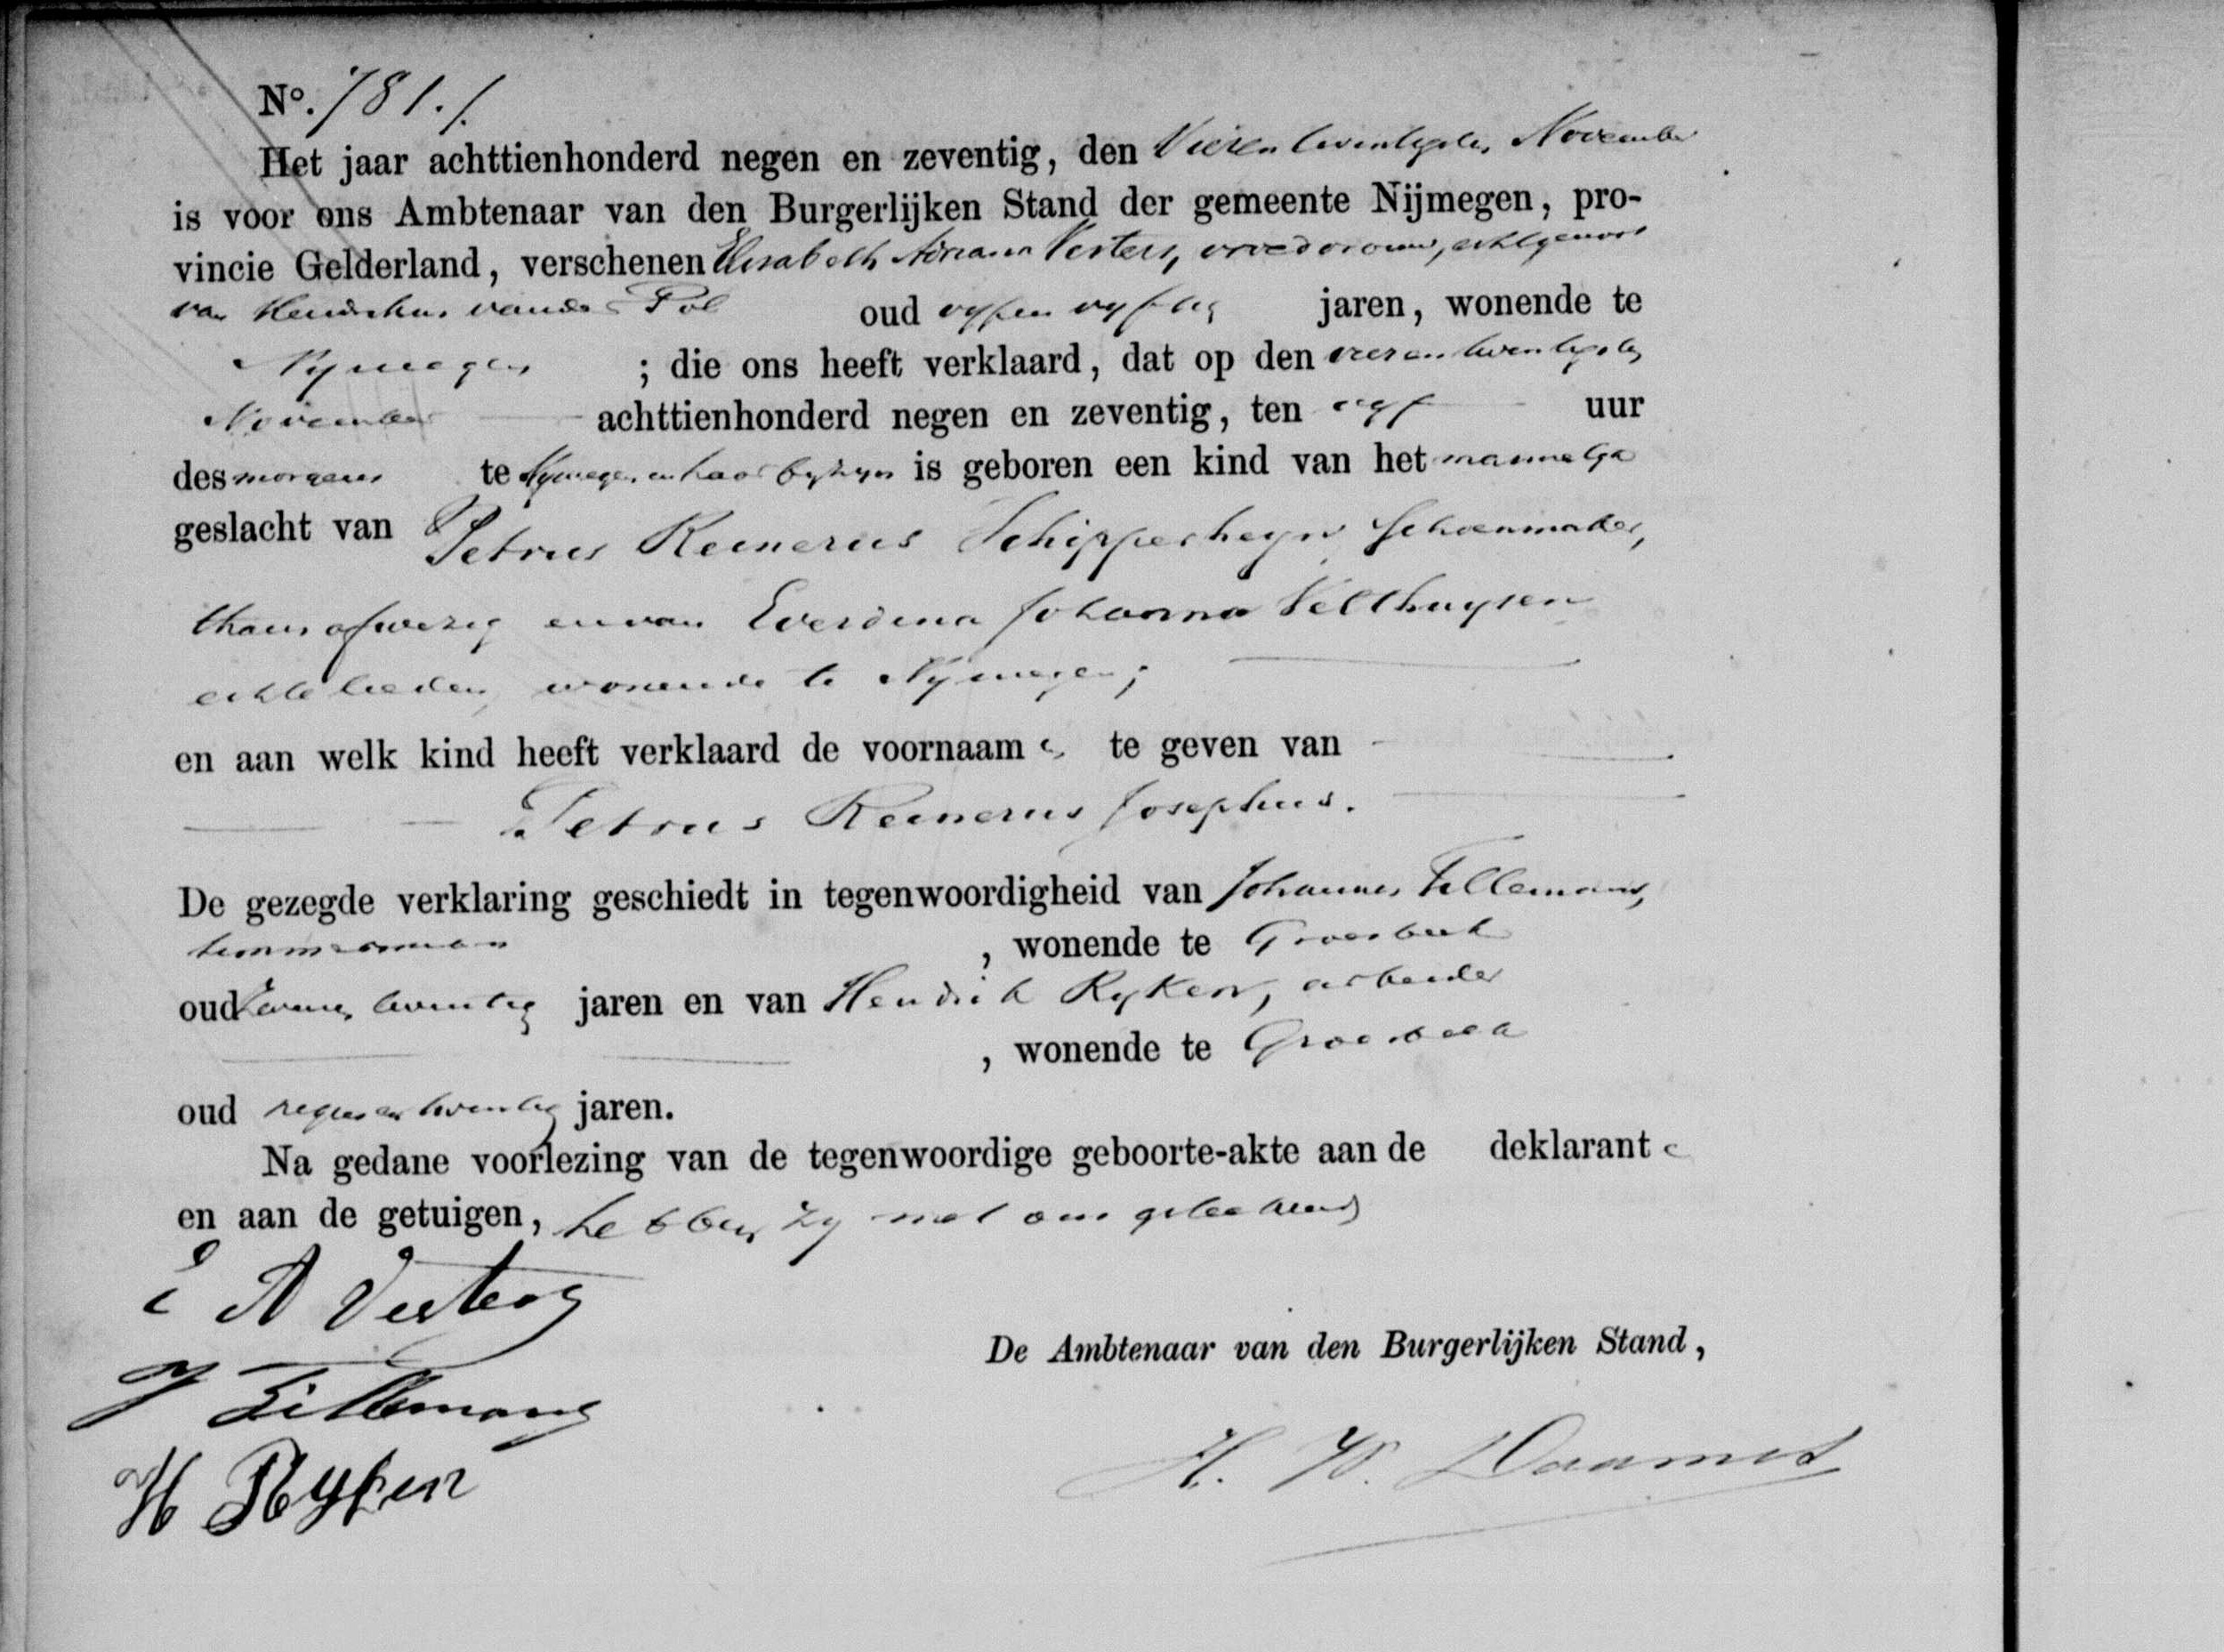 No. 781./.
Het jaar achttienhonderd negen en zeventig, den Vierentwintigsten November
is voor ons Ambtenaar van den Burgerlijken Stand der gemeente Nijmegen, pro-
vincie Gelderland, verschenen Elisabeth Adriana Versters, vroedvrouw, echtgenoot
van Hendrikus van de Pol oud vyfen vyftig jaren, wonende te
Nymegen ; die ons heeft verklaard, dat op den vierentwintigsten
November achttienhonderd negen en zeventig, ten vyf uur
des morgens te Nymegen in haar byzyn is geboren een kind van het mannelyk
geslacht van Petrus Reinerus Schipperheyn Schoenmaker,
thans afwezig en van Everdina Johanna Velthuysen
echtelieden, wonende te Nymegen;
en aan welk kind heeft verklaard de voornaam en te geven van
Petrus Reinerus Josephus.
De gezegde verklaring geschiedt in tegenwoordigheid van Johannes Tillemans,
timmerman , wonende te Groesbeek
oud zevenentwintig jaren en van Hendrik Ryken, arbeider
, wonende te Groesbeek
oud negenentwintig jaren.
Na gedane voorlezing van de tegenwoordige geboorte-akte aan de deklarant e
en aan de getuigen, hebben zy met ons geteekend
E A Versters
J Tillemans
De Ambtenaar van den Burgerlijken Stand,
H Ryken
H. W.